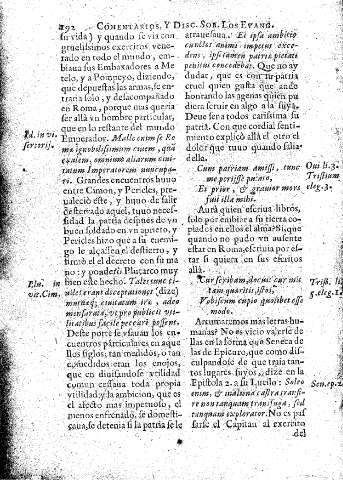 192 COMENTARIOS, Y DISC. SOB. LOS EVANG.
su vida) y quando se via con
gruesissimos exercitos venerado
en todo el mundo, embiaua
sus Embaxadores a Metelo,
y a Pompeyo, diziendo,
que depuestas las armas, se entraria
solo, y desacompañado
en Roma, porque mas queria
ser allà vn hombre particular,
que en lo restante del mundo
Emperador. Malle enim se Romæ
ignobilissimum ciuem, quã
exulem, omnium aliarum ciuitatum
Imperatorem nuncupari.
Grandes encuentros huuo
entre Cimon, y Pericles, preualeciò
este, y huuo de salir
desterrado aquel, tuuo necessidad
la patria despues de vn
buen soldado en vn aprieto, y
Pericles hizo que a su enemigo
le alçassen el destierro, y
firmò el el decreto con su mano:
y ponderò Plutarco muy
bien este hecho. Tales tunc ciuiles
erant disceptationes (dize)
iræ, adeo
mensurata, vt pro publicis vtilitatibus
facile reuocari possent.
Deste porte se vsauan los encuentros
particulares en aquellos
siglos; tan medidos, o tan
comedidos eran los enojos,
que en diuisandose vtilidad
comun cessaua toda propia
vtilidad, y la ambicion, que es
el afecto mas impetuoso, el
menos enfrenado, se domesticaua,
se detenia si la patria se le
atrauessaua. Et ipsa ambitio
cunctos animi impetus excedens,
ipsatamen patriæ pietati
concedebat. Que no ay
dudar, que es con su patria
cruel quien gusta que ande
honrando las agenas quien pudiera
seruir en algo a la suya.
Deue ser a todos carissima su
patria. Con que cordial sentimiento
explicò allà el otro el
dolor que tuuo quando saliò
della.
Cum patriam amissi, tunc
me perijsse putato,
Et prior, & grauior mors
fuit illa mihi.
Aun a quien escriuia libros,
solo por embiar a su tierra copiados
en ellos el alma: Si, que
quando no pudo vn ausente
estar en Roma, escriuia por estar
si quiera en sus escritos
allà.
Cur scribam, docui: cur mittam
quæritis, istos,
Vobiscum cupio quolibet esse
modo.
Arrimaremos mas letras humanas?
No es vicio valerse dellas
en la forma que Seneca de
las de Epicuro, que como disculpandose
de que traia tantos
lugares suyos, dize en la
Epistola 2. a su Lucilo: Soleo
enim, & in aliena castra transire,
non tanquam transfuga, sed
tanquam explorator. No es passarse
el Capitan al exercito
del
Plu. in
vit. Cim.
Oui. li. 3.
Tristium
eleg. 3.
Trist. li.
5. eleg. 1.
Sen. ep. 2.